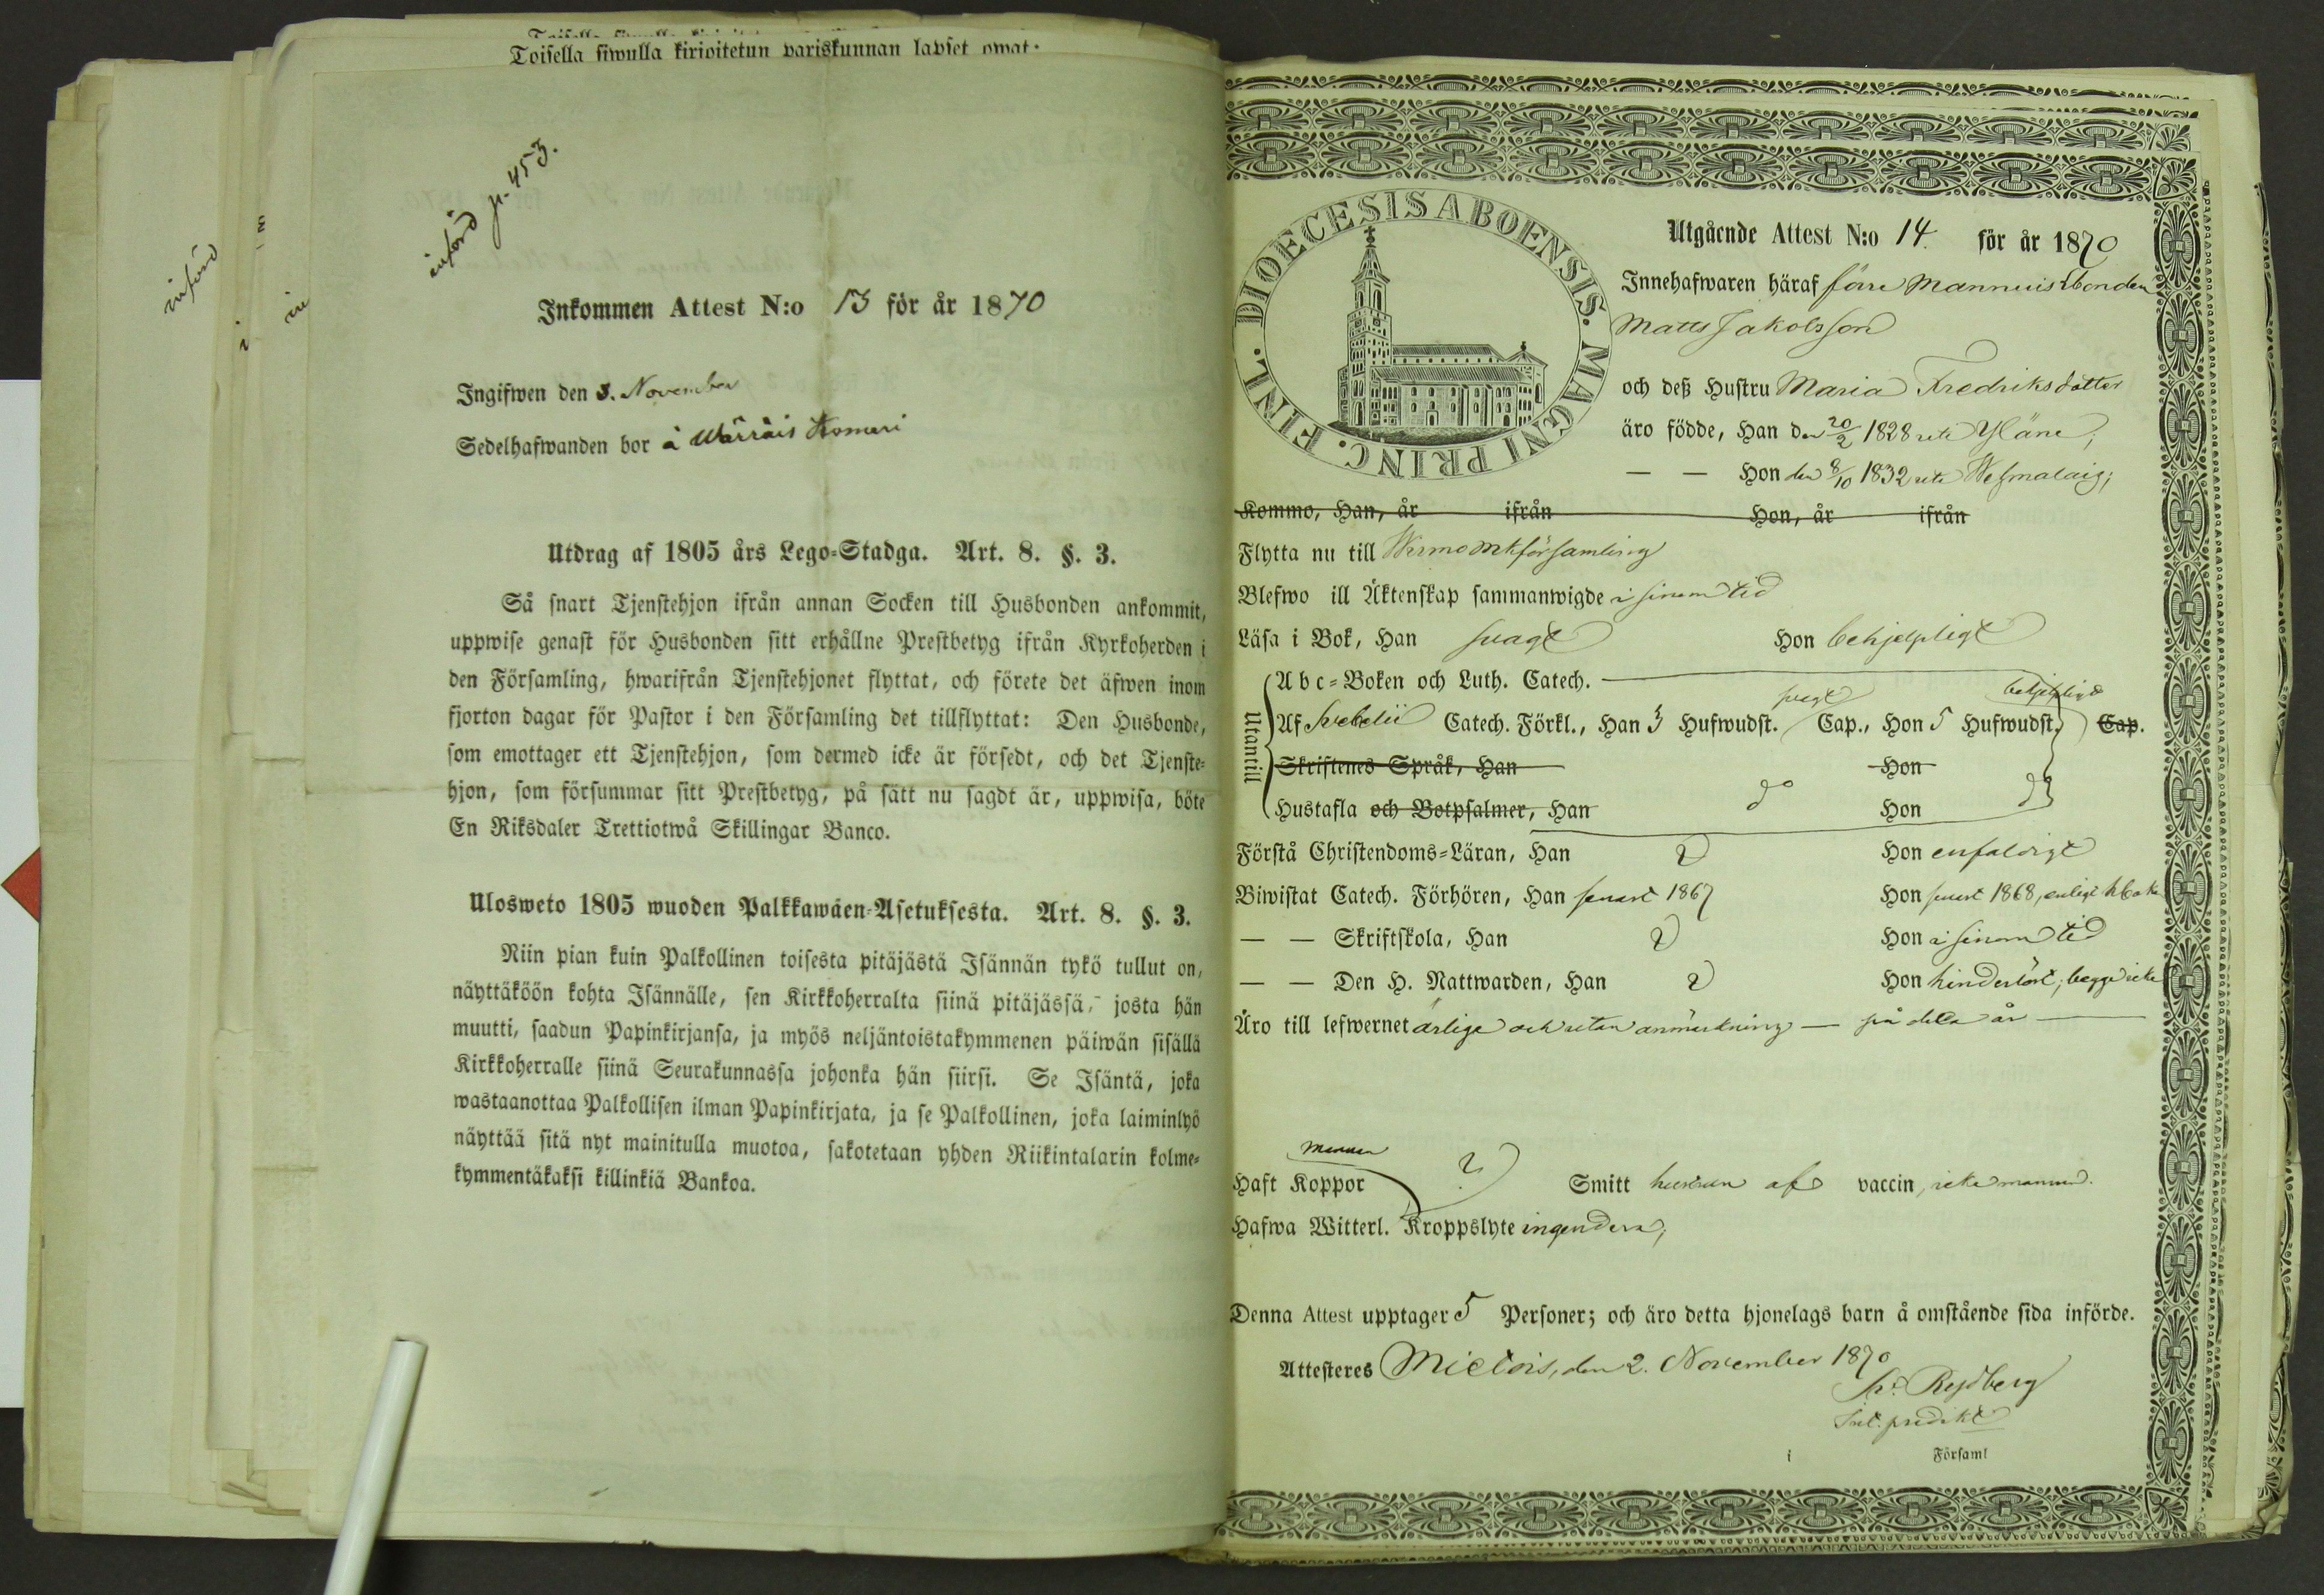 Toisella siwulla kirjoitetun pariskunnan lapset owat:
införd p. 453.
införd
Inkommen Attest N:o 13 för år 1870
Ingifwen den 3. November
Sedelhafwanden bor å Wärräis
Utdrag af 1805 års Lego-Stadga. Art. 8. §. 3.
Så snart Tjenstehjon ifrån annan Socken till Husbonden ankommit,
uppwise genast för Husbonden sitt erhållne Prestbetyg ifrån Kyrkoherden i
den Församling, hwarifrån Tjenstehjonet flyttat, och förete det äfwen inom
fjorton dagar för Pastor i den Församling det tillflyttat: Den Husbonde,
som emottager ett Tjenstehjon, som dermed icke är försedt, och det Tjenste-
hjon, som försummar sitt Prestbetyg, på sätt nu sagdt är, uppwisa, böte
En Riksdaler Trettiotwå Skillingar Banco.
Ulosweto 1805 wuoden Palkkawäen-Asetuksesta. Art. 8. §. 3.
Niin pian kuin Palkollinen toisesta pitäjästä Isännän tykö tullut on,
näyttäköön kohta Isännälle, sen Kirkkoherralta siinä pitäjässä, josta hän
muutti, saadun Papinkirjansa, ja myös neljäntoistakymmenen päiwän sisällä
Kirkkoherralle siinä Seurakunnassa johonka hän siirsi. Se Isäntä, joka
wastaanottaa Palkollisen ilman Papinkirjata, ja se Palkollinen, joka laiminlyö
näyttää sitä nyt mainitulla muotoa, sakotetaan yhden Riikintalarin kolme-
kymmentäkaksi killinkiä Bankoa.
DIOECESIS ABOENSIS. MAGNI PRINC. FINL.
Utgående Attest N:o 14. för år 1870
Innehafwaren häraf förre Mannuis bonden
Matts Jakobsson
och deß Hustru Maria Fredriksdotter
äro födde, Han den 20/2 1828 uti Yläne;
— — Hon den 8/10 1832 uti
Kommo, Han, år ifrån Hon, år ifrån
Flytta nu till Wirmo mkförsamling
Blefwo ill Äktenskap sammanwigde i sinom tid
Läsa i Bok, Han svagt Hon behjelpligt
Utantill
Abc-Boken och Luth. Catech.
svagt behjelpligt
Af Svebelii Catech. Förkl., Han 3 Hufwudst. Cap., Hon 5 Hufwudst. Cap.
Skriftenes Språk, Han Hon
Hustafla och Botpsalmer, Han do Hon do
Förstå Christendoms-Läran, Han Hon enfaldigt
Biwistat Catech. Förhören, Han senast 1867 Hon senast 1868, enligt
— — Skriftskola, Han Hon i sinom tid
— — Den H. Nattwarden, Han Hon hinderlöst; begge icke
Äro till lefwernet ärlige och utan anmärkning — på detta år —
mannen
Haft Koppor ? Smitt hustrun af vaccin, icke mannen.
Hafwa Witterl. Kroppslyte ingendera;
Denna Attest upptager 5 Personer; och äro detta hjonelags barn å omstående sida införde.
Attesteres Mietois, den 2. November 1870
Rydberg
i Församl